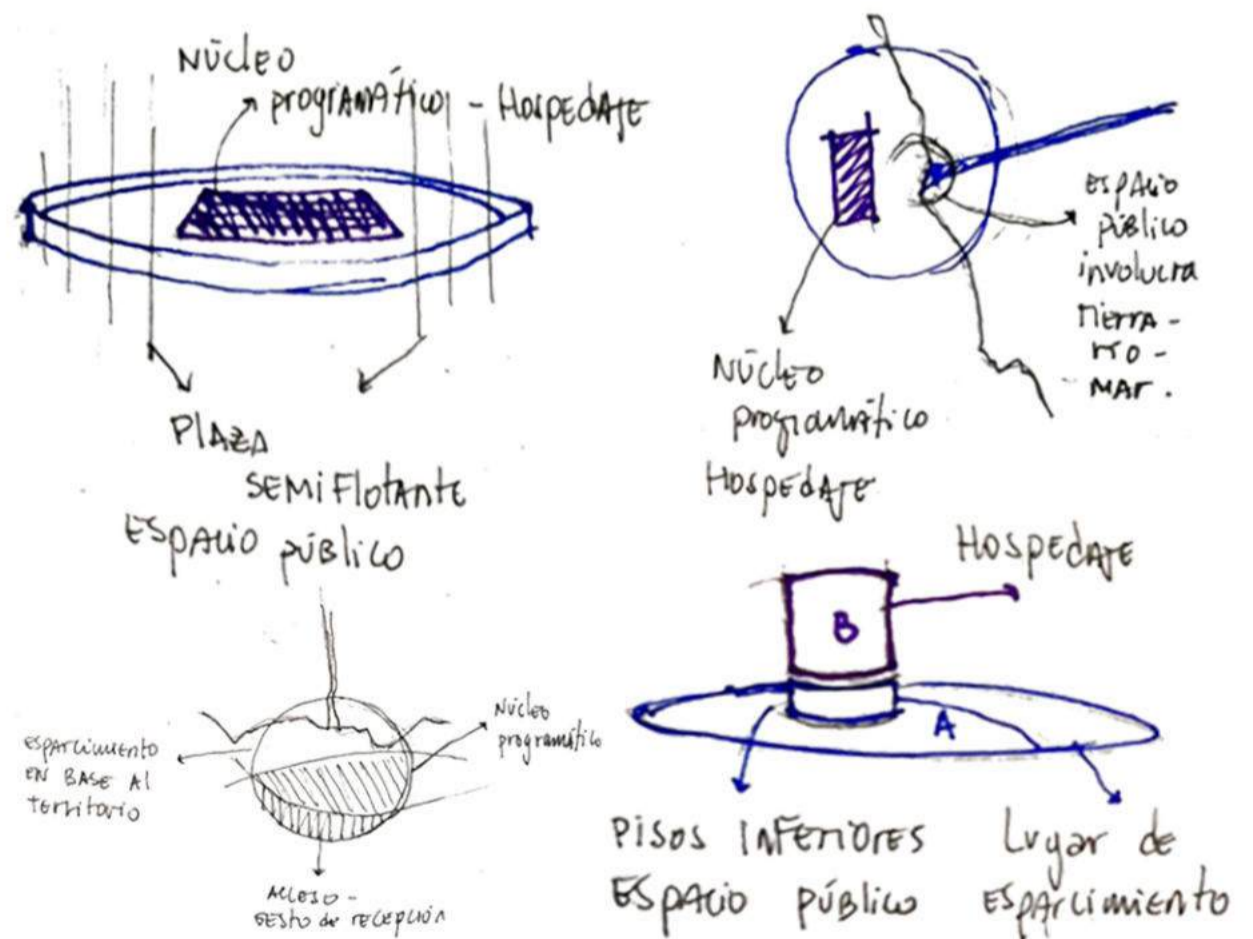 NÚCLEO
programático - HOSPEDAJE
PLAZA
SEMIFLOTANTE
ESPACIO público
ESPACIO
público
involucra
TIERRA -
RIO -
MAR.
NÚCLEO
programático
HOSPEDAJE
NÚCLEO
programático
ESPARCIMIENTO
EN BASE AL
TERRITORIO
ACCESO -
GESTO de RECEPCIÓN
HOSPEDAJE
B
A
PISOS INFERIORES
ESPACIO PÚBLICO
Lugar de
ESPARCIMIENTO